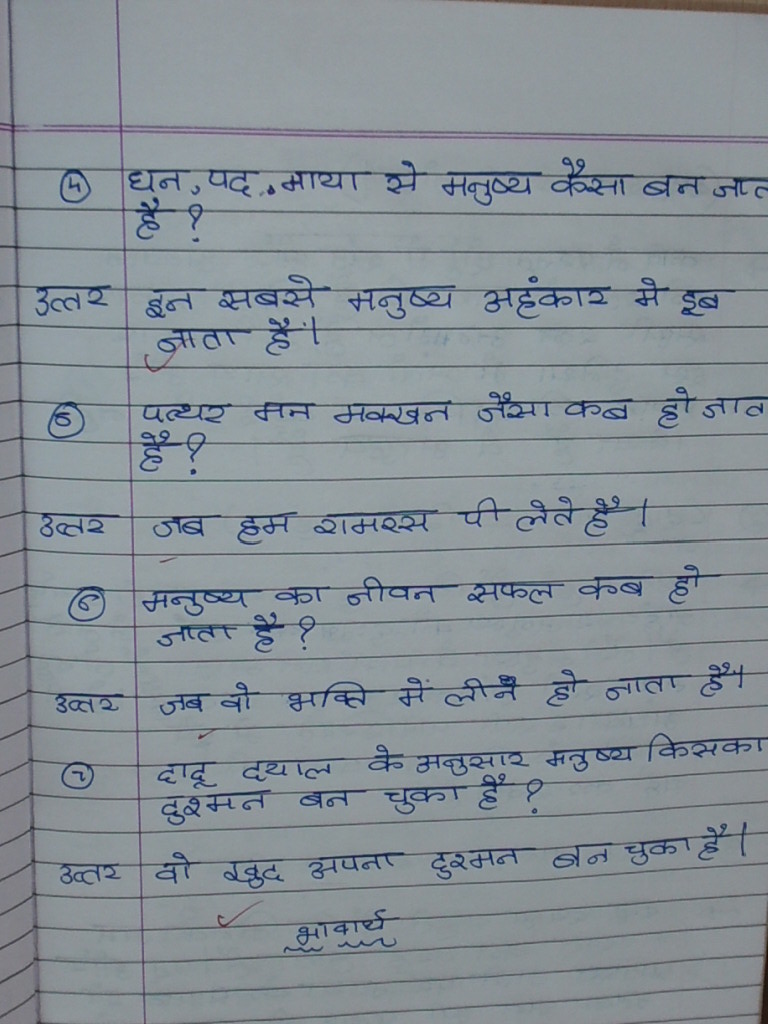 ४ धन, पद, माया से मनुष्य कैसा बन जात
है ?
उत्तर इन सबसे मनुष्य अहंकार मे डूब
जाता है।
५ पत्थर मन मक्खन जैसा कब हो जात
है ?
उत्तर जब हम रामरस पी लेते है।
६ मनुष्य का जीवन सफल कब हो
जाता है ?
उत्तर जब वो भक्ति में लीन हो जाता है।
७ दादू दयाल के अनुसार मनुष्य किसका
दुश्मन बन चुका है ?
उत्तर वो खुद अपना दुश्मन बन चुका है।
भावार्थ